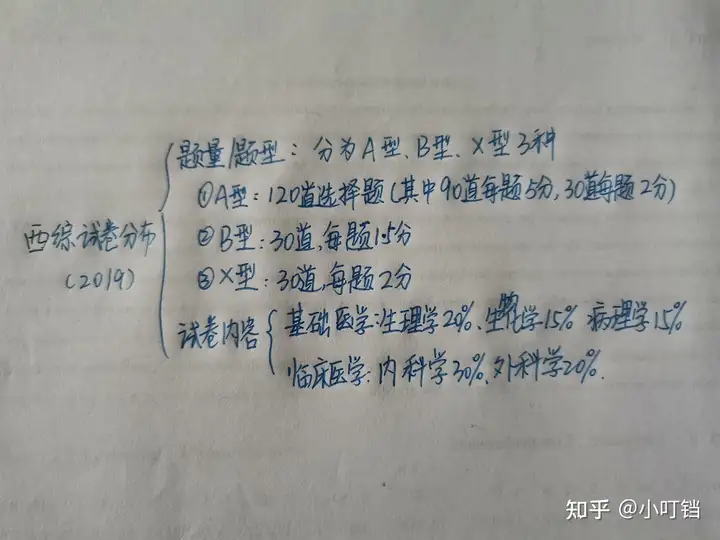 题量/题型：分为A型、B型、X型3种
①A型：120道选择题(其中90道每题1.5分,30道每题2分)
西综试卷分布
(2019)
②B型：30道,每题1.5分
③X型：30道,每题2分
试卷内容
基础医学:生理学20%、生化学15% 病理学15%
临床医学:内科学30%、外科学20%.
知乎 @小叮铛